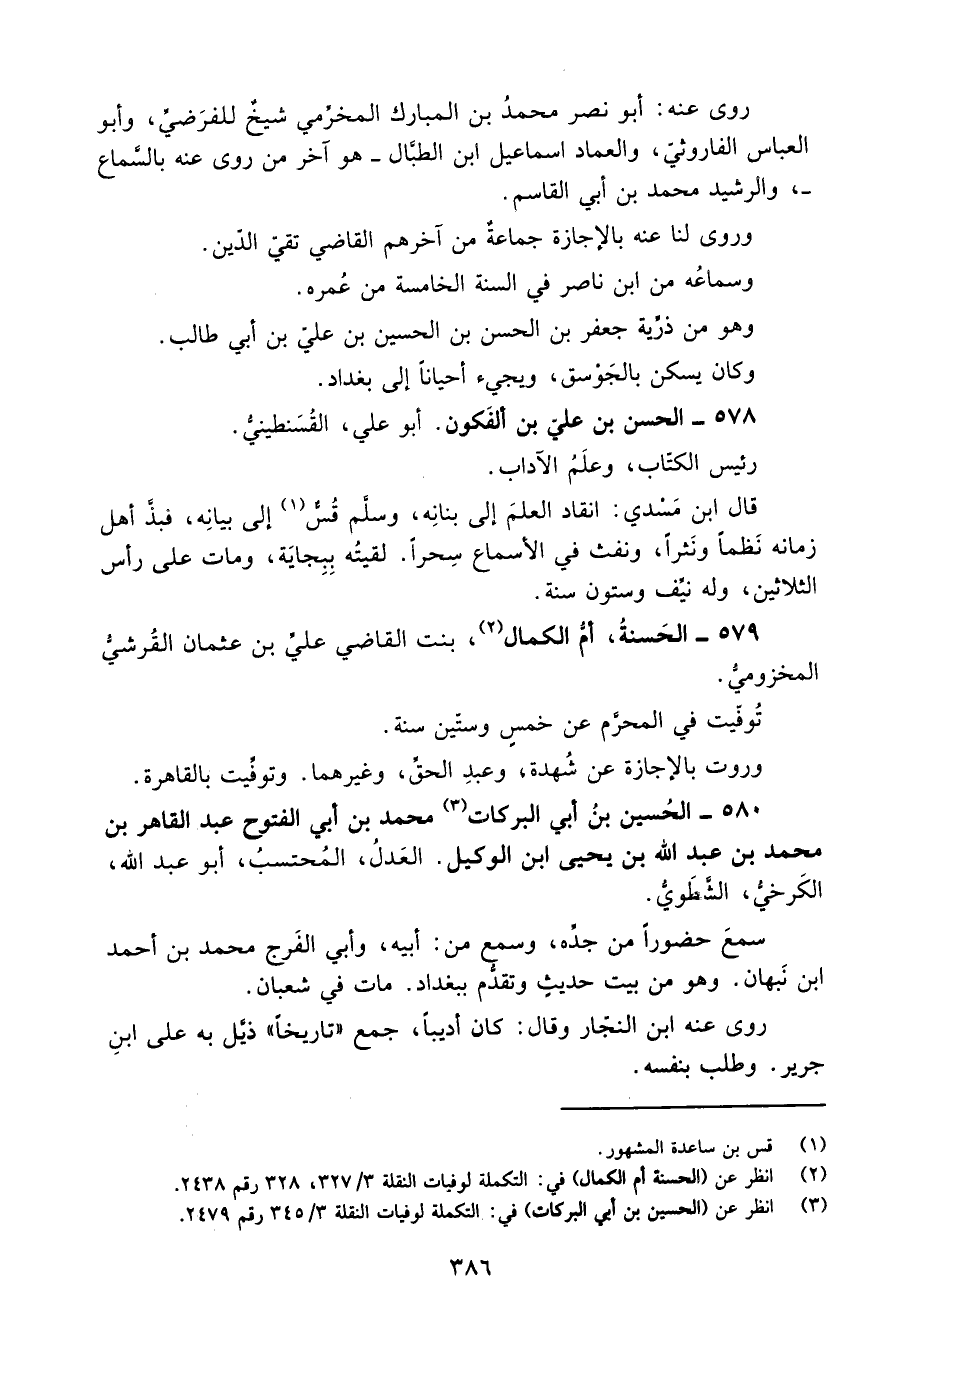 روى عنه: أبو نصر محمدُ بن المبارك المخرِّمي شيخٌ للفرَضيِّ، وأبو
العباس الفاروثيّ، والعماد اسماعيل ابن الطبَّال ـ هو آخر من روى عنه بالسَّماع
ـ، والرشيد محمد بن أبي القاسم.
وروى لنا عنه بالإجازة جماعةٌ من آخرهم القاضي تقيّ الدّين.
وسماعُه من ابن ناصر في السنة الخامسة من عُمره.
وهو من ذرّية جعفر بن الحسن بن الحسين بن عليّ بن أبي طالب.
وكان يسكن بالجَوْسق، ويجيء أحياناً إلى بغداد.
٥٧٨ ـ الحسن بن عليّ بن ألفَكون. أبو علي، القُسَنطينيُّ.
رئيس الكتّاب، وعلَمُ الآداب.
قال ابن مَسْدي: انقاد العلمَ إلى بنانِه، وسلَّم قُسٌّ(١) إلى بيانِه، فبذَّ أهل
زمانه نَظماً ونَثراً، ونفث في الأسماع سِحراً. لقيتُه بِبِجايَة، ومات على رأس
الثلاثين، وله نيِّف وستون سنة.
٥٧٩ ـ الحَسنةُ، أمُّ الكمال(٢)، بنت القاضي عليِّ بن عثمان القُرشيُّ
المخزوميُّ.
تُوفّيت في المحرَّم عن خمسٍ وستّين سنة.
وروت بالإجازة عن شُهدة، وعبدِ الحقِّ، وغيرهما. وتوفّيت بالقاهرة.
٥٨٠ ـ الحُسين بنُ أبي البركات(٣) محمد بن أبي الفتوح عبد القاهر بن
محمد بن عبد الله بن يحيى ابن الوكيل. العَدلُ، المُحتسبُ، أبو عبد الله،
الكَرخيُّ، الشَّطَويُّ.
سمعَ حضوراً من جدِّه، وسمع من: أبيه، وأبي الفَرج محمد بن أحمد
ابن نَبهان. وهو من بيت حديثٍ وتقدُّم ببغداد. مات في شعبان.
روى عنه ابن النجّار وقال: كان أديباً، جمع «تاريخاً» ذيَّل به على ابنِ
جرير. وطلب بنفسه.
(١) قس بن ساعدة المشهور.
(٢) انظر عن (الحسنة أم الكمال) في: التكملة لوفيات النقلة ٣/ ٣٢٧، ٣٢٨ رقم ٢٤٣٨.
(٣) انظر عن (الحسين بن أبي البركات) في: التكملة لوفيات النقلة ٣/ ٣٤٥ رقم ٢٤٧٩.
٣٨٦